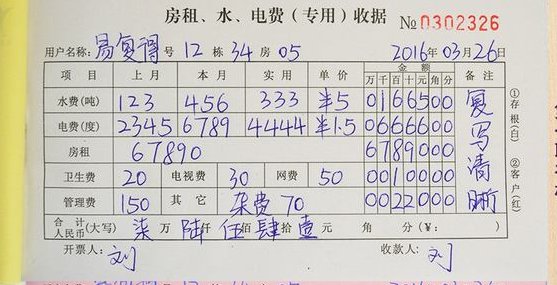 房租、水、电费（专用）收据 No 0302326
用户名称：易复得 号 12 栋 34 房 05 2016年03月26日
项目 上月 本月 实用 单价 金额 备注
万 千 百 十 元 角 分
水费(吨) 123 456 333 半5 0166500
电费(度) 2345 6789 4444 半1.5 0666600
房租 67890 6789000
卫生费 20 电视费 30 网费 50 0010000
管理费 150 其它 杂费 70 0022000
复写清晰
合计人民币(大写) 柒万陆仟伍佰肆拾壹元 角 分(¥: )
开票人：刘 收款人：刘
①存根(白) ②客户(红)